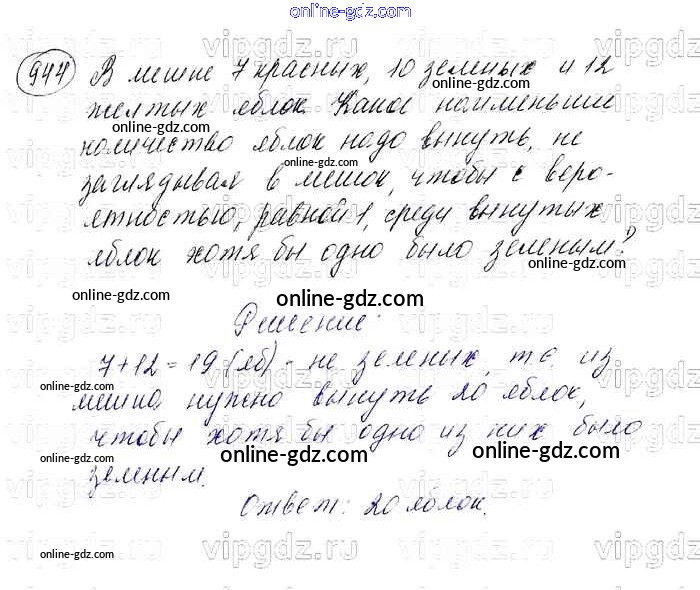 online-gdz.com
944 В мешке 7 красных, 10 зеленых и 12
желтых яблок. Какое наименьшее
количество яблок надо вынуть, не
заглядывая в мешок, чтобы с веро-
ятностью, равной 1, среди вынутых
яблок хотя бы одно было зеленым?
online-gdz.com
Решение:
7+12=19 (яб) - не зеленых, т.е. из
мешка нужно вынуть 20 яблок,
чтобы хотя бы одно из них было
зеленым.
Ответ: 20 яблок.
online-gdz.com
vipgdz.com